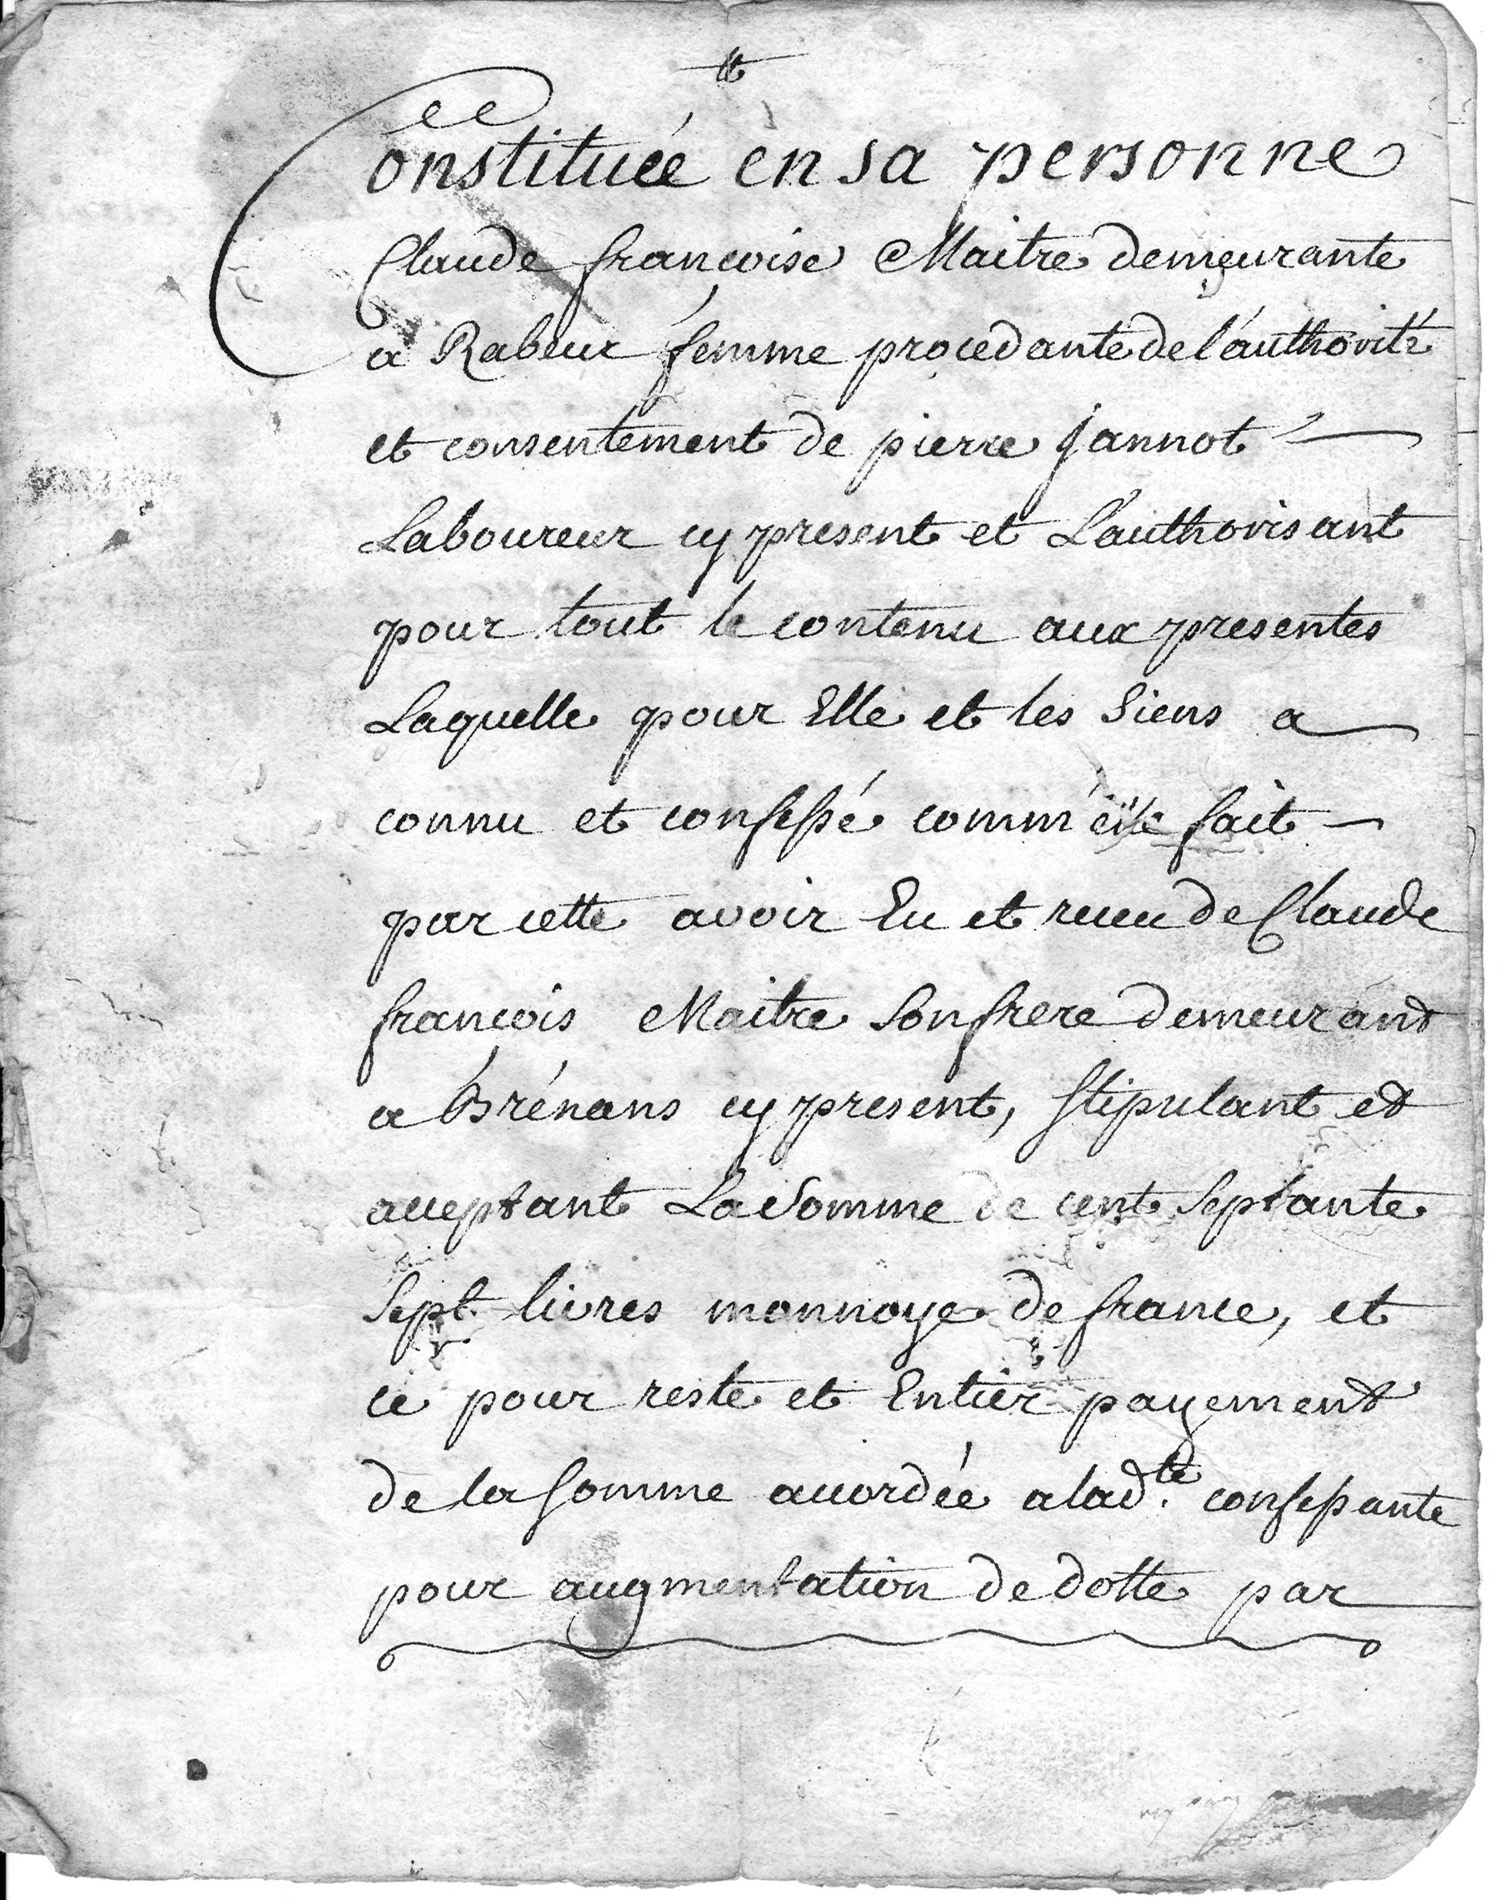 Constituée en sa personne
Claude françoise Maitre demeurante
a Rabeur femme procedante de l'authorité
et consentement de pierre jannot
Laboureur cy present et L'authorisant
pour tout le contenu aux presentes
Laquelle pour Elle et les Siens a
connu et confessé comm'elle fait
par cette avoir Eu et receu de Claude
françois Maitre Son frere demeurant
a Brénans cy present, stipulant et
acceptant La Somme de cent Septante
Sept livres monnoye de france, et
ce pour reste et Entier payement
de la somme accordée a lad.te confessante
pour augmentation de dotte par